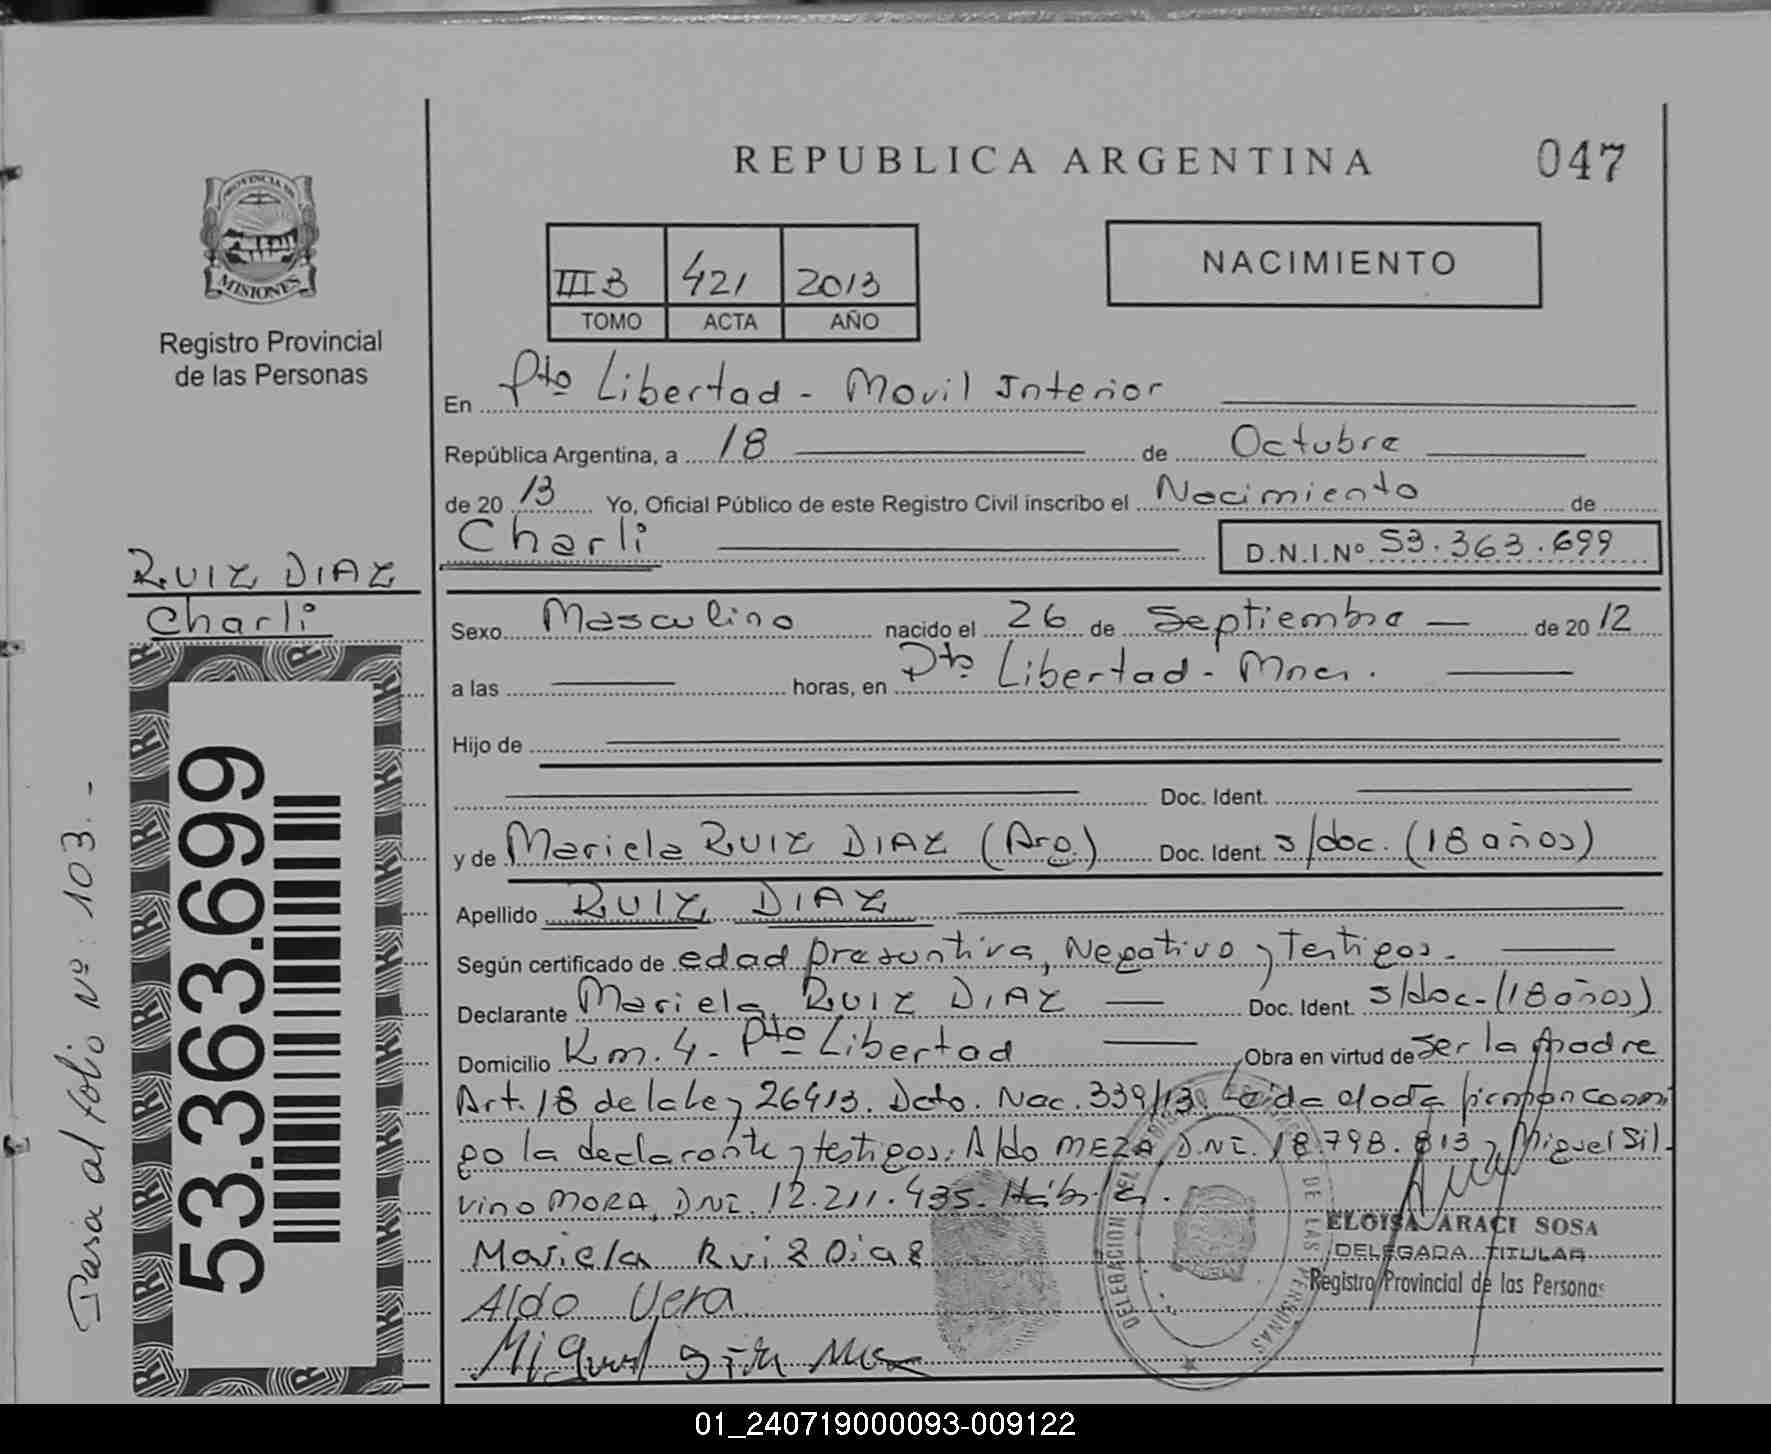 REPUBLICA ARGENTINA
047
PROVINCIA DE
MISIONES
Registro Provincial
de las Personas
III B 421 2013
TOMO ACTA AÑO
NACIMIENTO
En Pto Libertad - Movil Interior
República Argentina, a 18 de Octubre
de 20 13 Yo, Oficial Público de este Registro Civil inscribo el Nacimiento de
Charli
D.N.I.Nº 53.363.699
RUIZ DIAZ
Charli
53.363.699
Pasa al folio Nº: 103.-
Sexo Masculino nacido el 26 de Septiembre de 20 12
a las horas, en Pto Libertad - Mnes.
Hijo de
Doc. Ident.
y de Mariela RUIZ DIAZ (Arg.) Doc. Ident. s/doc. (18 años)
Apellido RUIZ DIAZ
Según certificado de edad presuntiva, Negativo y Testigos.
Declarante Mariela RUIZ DIAZ Doc. Ident. s/doc-(18 años)
Domicilio Km. 4 - Pto Libertad Obra en virtud de ser la madre
Art. 18 de la Ley 26413. Dcto. Nac. 339/13. Leida el acta firman conmi
go la declarante y testigos: Aldo MEZA, DNI. 18.798.813 y Miguel Sil-
vino MORA, DNI. 12.211.435.
Mariela Ruiz Diaz
Aldo Vera
Miguel
DELEGACION DE LAS PERSONAS
ELOISA ARACI SOSA
DELEGADA TITULAR
Registro Provincial de las Personas
01_240719000093-009122